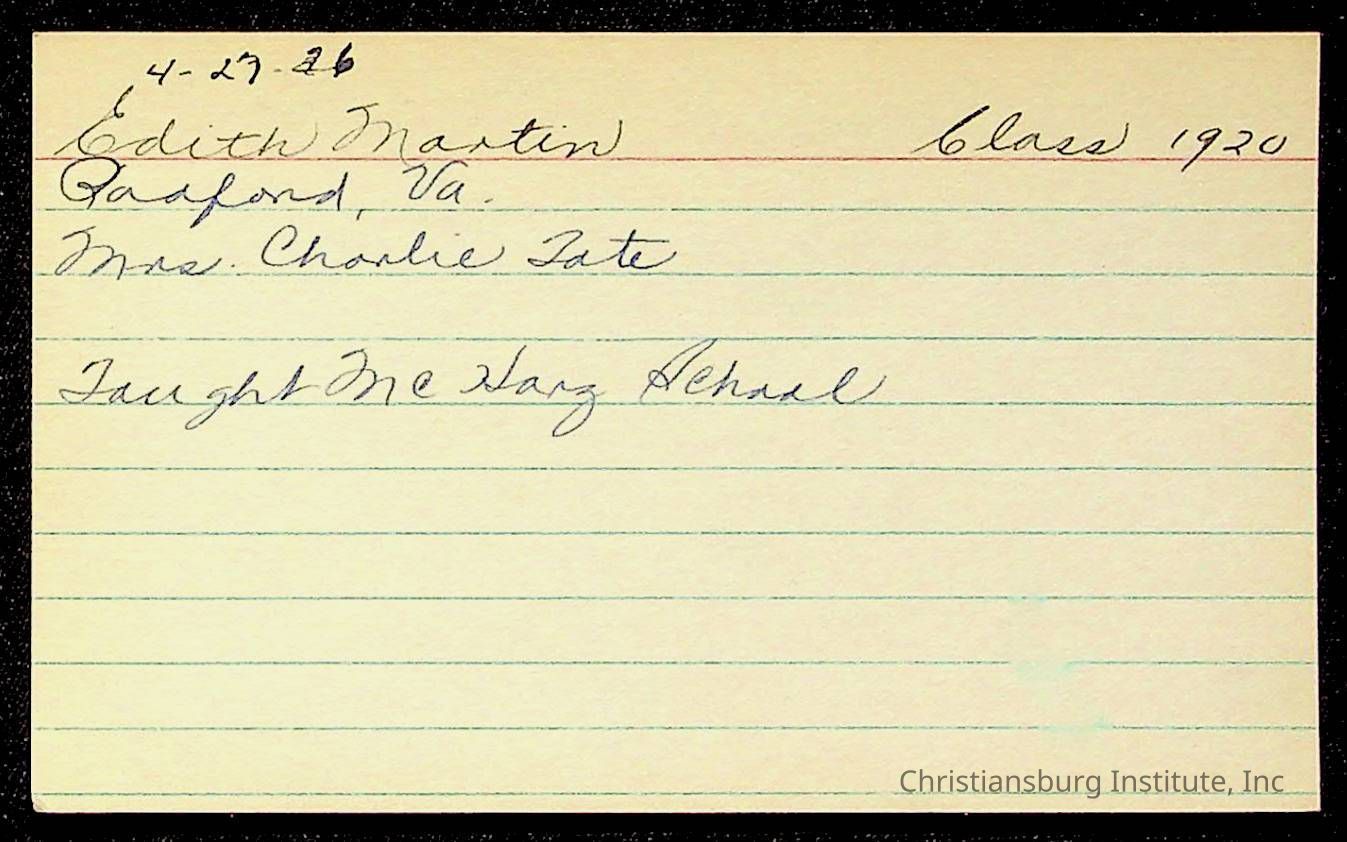 4-27-26
Edith Martin Class 1920
Radford, Va.
Mrs. Charlie Tate
Taught Mc Harg School
Christiansburg Institute, Inc